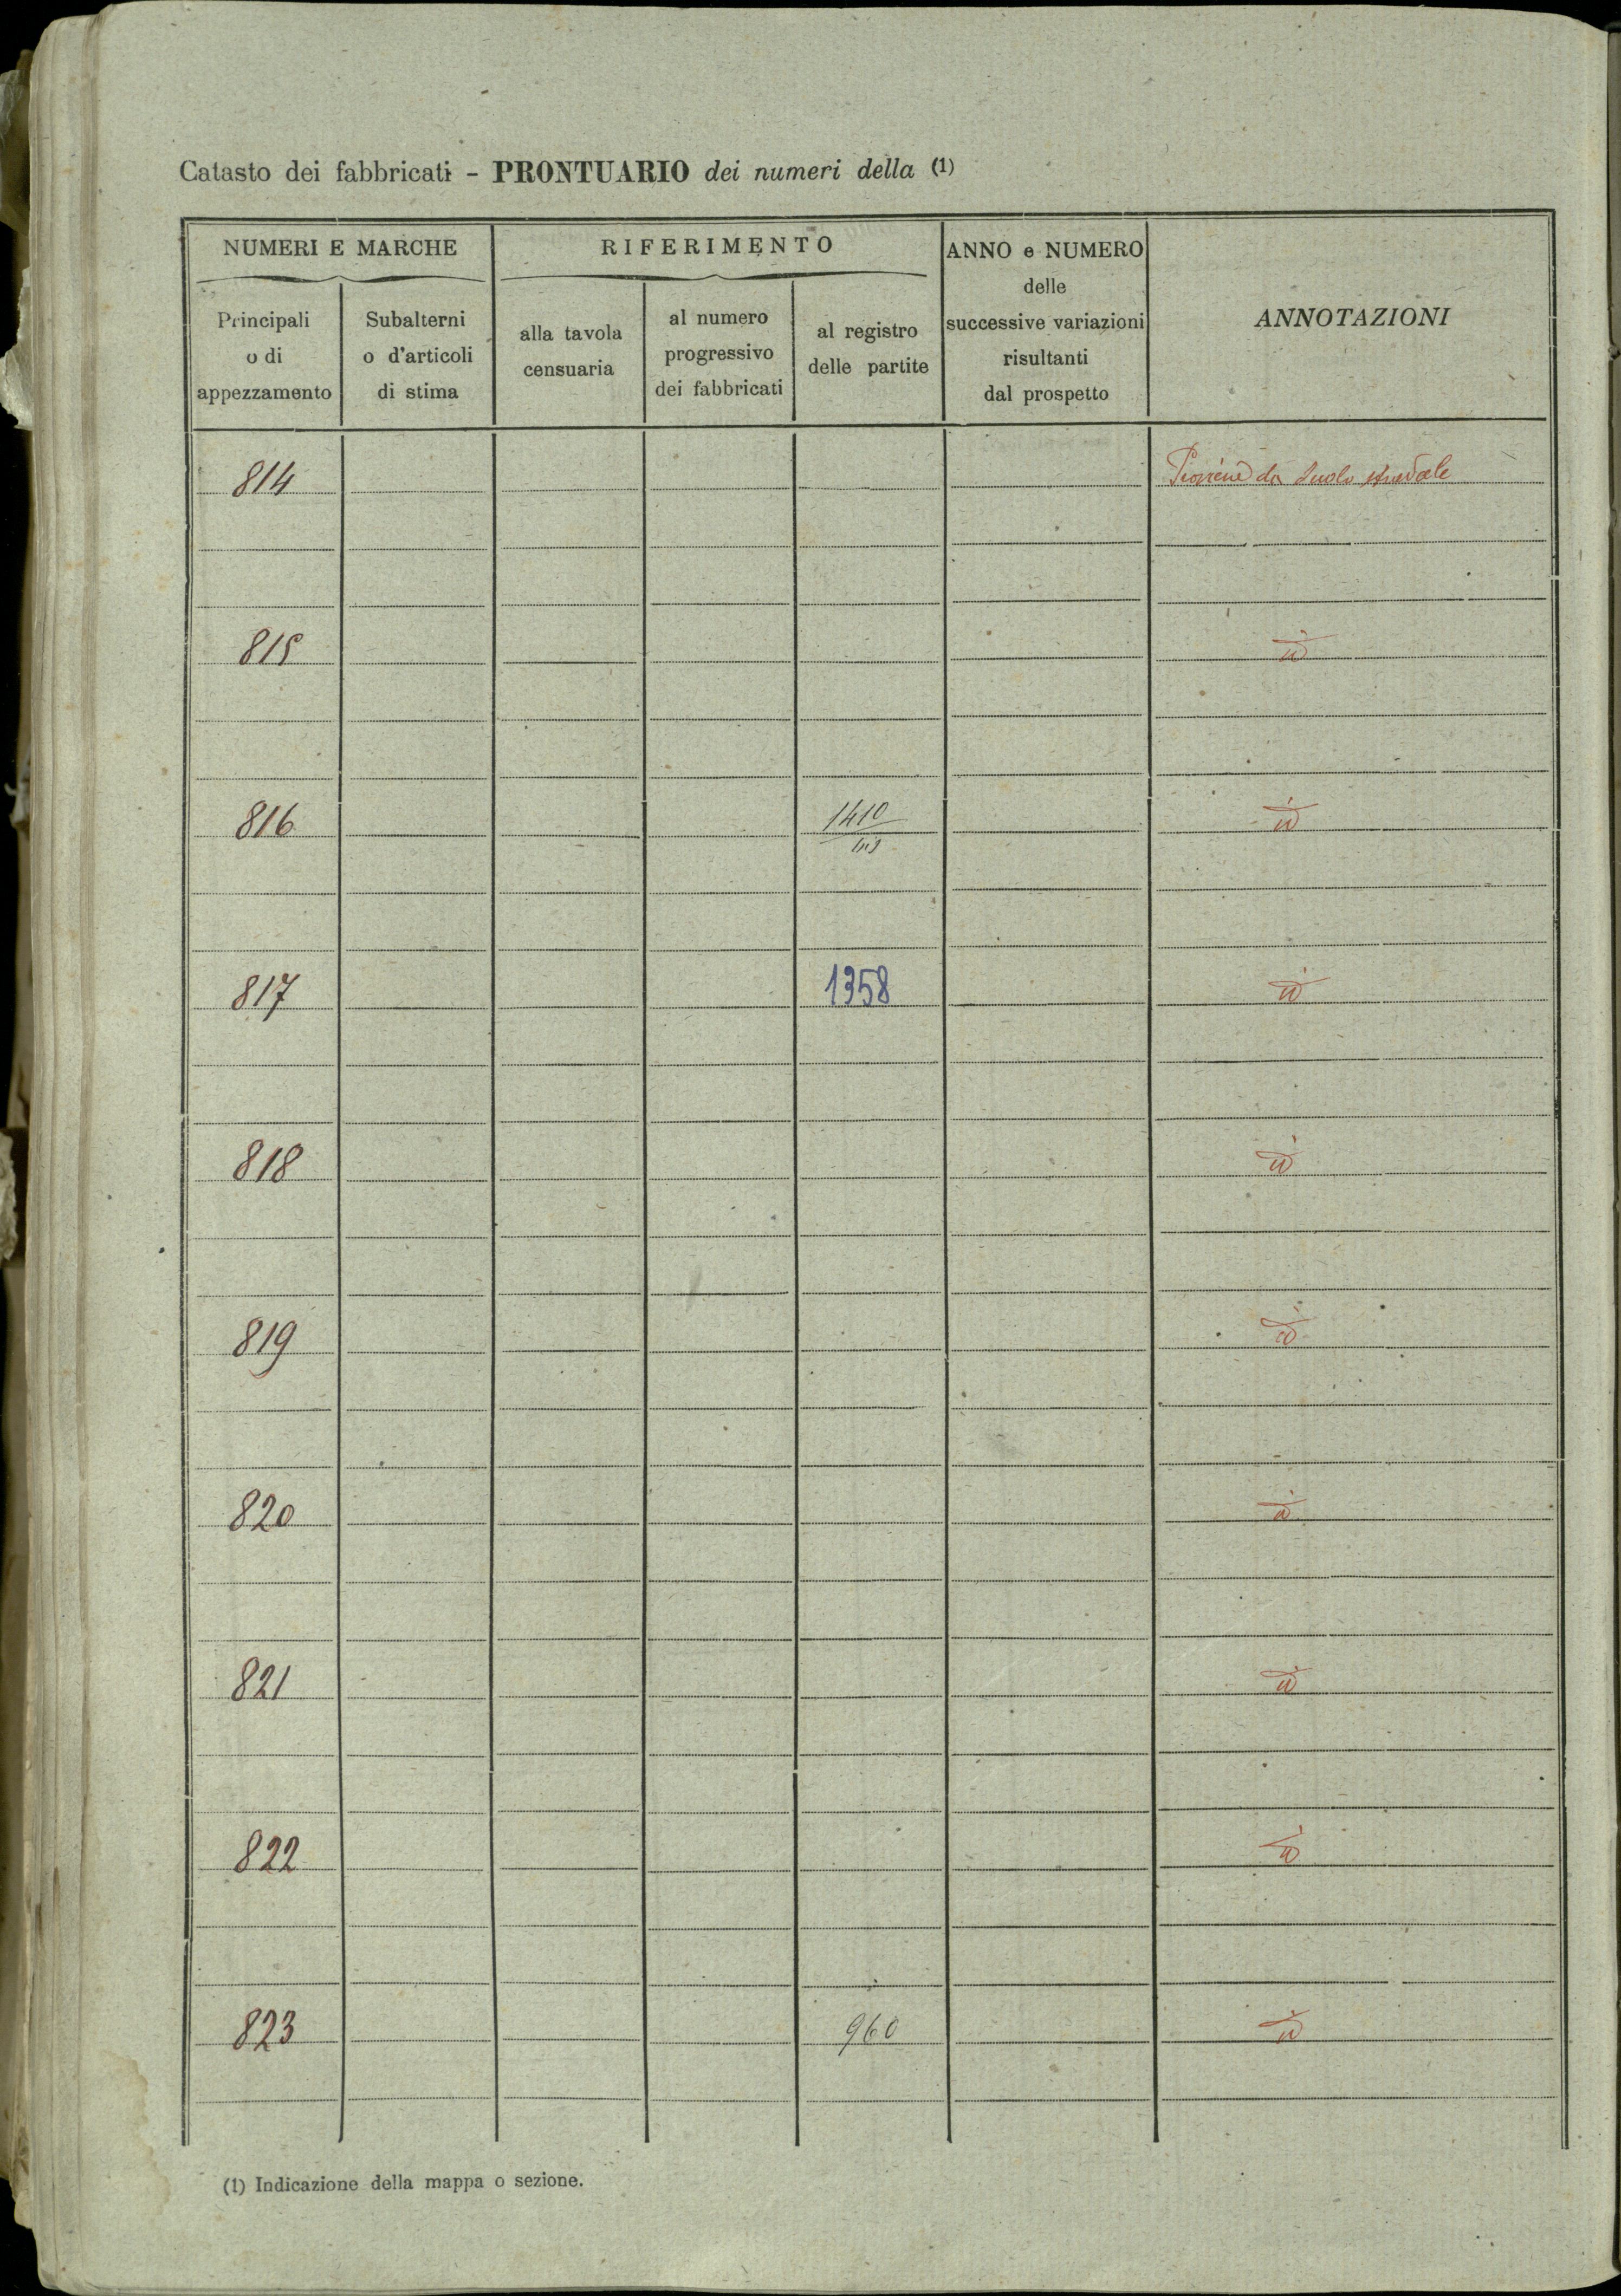 Catasto dei fabbricati - PRONTUARIO dei numeri della (1)
NUMERI E MARCHE
RIFERIMENTO
ANNO e NUMERO
delle
successive variazioni
risultanti
dal prospetto
ANNOTAZIONI
Principali
o di
appezzamento
Subalterni
o d'articoli
di stima
alla tavola
censuaria
al numero
progressivo
dei fabbricati
al registro
delle partite
814 Proviene da suolo stradale
815 id
816 1410 id
817 1358 id
818 id
819 id
820 id
821 id
822 id
823 960 id
(1) Indicazione della mappa o sezione.